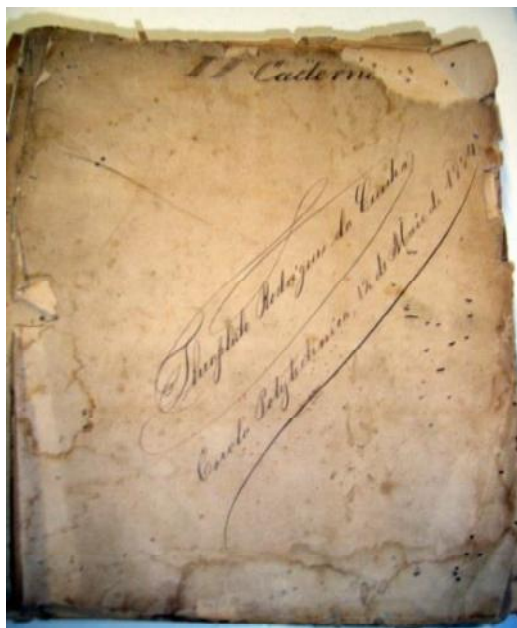 II Caderno
Theophilo Rodrigues da
Escola Polytechnica, 12 de Maio de